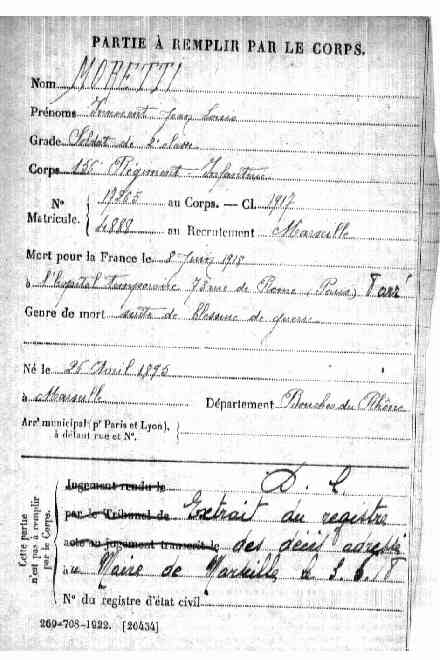 PARTIE À REMPLIR PAR LE CORPS.
Nom MORETTI
Prénoms Jean Louis
Grade Soldat de 2e classe
Corps 156 Régiment Infanterie
N° Matricule. 19265 au Corps. — Cl. 1917
4888 au Recrutement Marseille
Mort pour la France le 8 Juin 1918
à l'hopital temporaire 73 rue de Rome (Paris) 8 arrt
Genre de mort suite de blessure de guerre
Né le 25 Avril 1895
à Marseille Département Bouches du Rhône
Arrt municipal (pr Paris et Lyon),
à défaut rue et N°.
Cette partie n'est pas à remplir par le Corps.
Jugement rendu le D. C.
par le Tribunal de Extrait du registre
acte ou jugement transcrit le des décès adressé
au Maire de Marseille le
N° du registre d'état civil
269-708-1922. [26434]